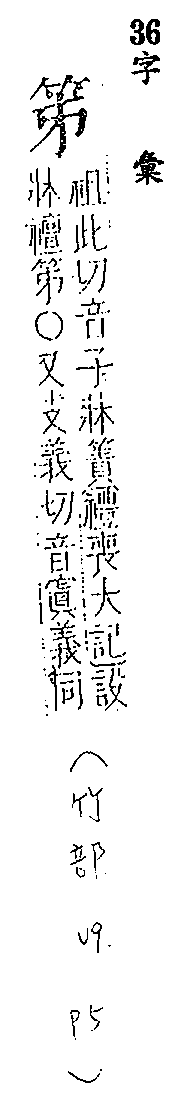 36 字彙
笫
祖此切音子牀簀禮喪大記設
牀襢笫○又支義切音寘義同
(竹部 v9. p5)